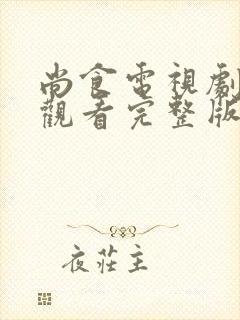 尚食電視劇
觀看完整版
夜莊主